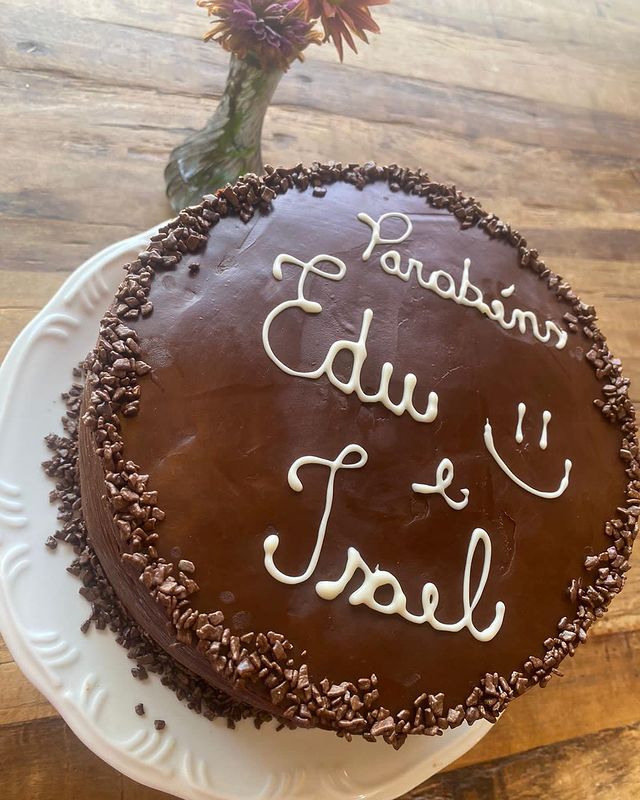 Parabéns
Edu
e
Israel